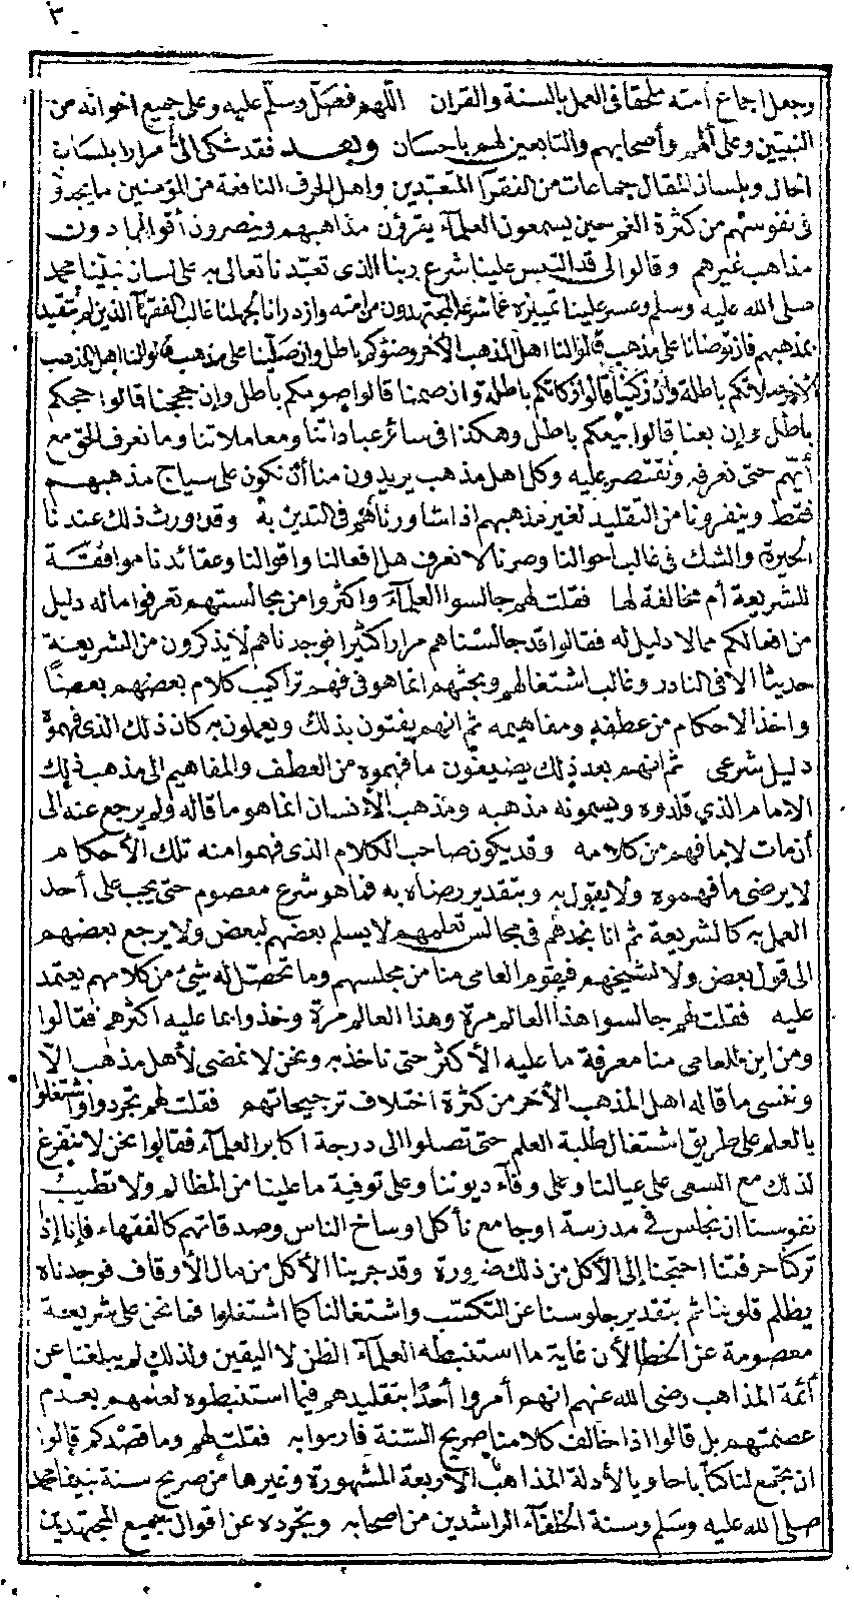 ٣
وجعل اجماع أمته ملحقا فى العمل بالسنة والقران اللهم فصل وسلم عليه وعلى جميع اخوانه من
النبيين وعلى ألهم وأصحابهم والتابعين لهم باحسان وبعد فقد شكى الىّ مرارا بلسان
الحال وبلسان المقال جماعات من الفقرآ المتعبدين واهل الحرف النافعة من المؤمنين ما يجدوا
فى نفوسهم من كثرة الغم حين يسمعون العلمآء يقرؤن مذاهبهم وينصرون أقوالها دون
مذاهب غيرهم وقالوا لى قد التبس علينا شرع ربنا الذى تعبدنا تعالى به على لسان نبينا محمد
صلى الله عليه وسلم وعسر علينا تمييزه عما شرعه المجتهدون من امته وازدرانا لجهلنا غالب الفقهآ الذين لم نتقيد
بمذهبهم فان توضانا على مذهب قالوا لنا اهل المذهب الأخر وضؤكم باطل وان صلينا على مذهب قالوا لنا اهل المذهب
الاخر صلاتكم باطلة وان زكينا قالوا زكاتكم باطلة وان صمنا قالوا صومكم باطل وإن حججنا قالوا حجكم
باطل وإن بعنا قالوا بيعكم باطل وهكذا فى سائر عباداتنا ومعاملاتنا وما نعرف الحق مع
أيهم حتى نعرفه ونقتصر عليه وكل اهل مذهب يريدون منا أن نكون على سياج مذهبهم
فقط وينفرونا من التقليد لغير مذهبهم اذا شاورناهم فى التدين به وقد ورث ذلك عندنا
الحيرة والشك فى غالب احوالنا وصرنا لا نعرف هل افعالنا واقوالنا وعقائدنا موافقة
للشريعة أم مخالفة لها فقلت لهم جالسوا العلمآء واكثروا من مجالستهم تعرفوا ما له دليل
من افعالكم مما لا دليل له فقالوا قد جالسناهم مرارا كثيرا فوجدناهم لا يذكرون من الشريعة
حديثا الا فى النادر وغالب اشتغالهم وبحثهم انما هو فى فهم تراكيب كلام بعضهم بعضا
واخذ الاحكام من عطفه ومفاهيمه ثم انهم يفتون بذلك ويعملون به كان ذلك الذى فهموه
دليل شرعى ثم انهم بعد ذلك يضيفون ما فهموه من العطف والمفاهيم الى مذهب ذلك
الامام الذي قلدوه ويسمونه مذهبه ومذهب الأنسان انما هو ما قاله ولم يرجع عنه الى
أن مات لا ما فهم من كلامه وقد يكون صاحب الكلام الذى فهموا منه تلك الأحكام
لا يرضى ما فهموه ولا يقول به وبتقدير رضاه به فما هو شرع معصوم حتى يجب على أحد
العمل به كالشريعة ثم انا نجدهم فى مجالس تعلمهم لا يسلم بعضهم لبعض ولا يرجع بعضهم
الى قول بعض ولا لشيخهم فيقوم العامى منا من مجلسهم وما تحصل له شىء من كلامهم يعتمد
عليه فقلت لهم جالسوا هذا العالم مرة وهذا العالم مرة وخذوا بما عليه اكثرهم فقالوا
ومن اين للعامى منا معرفة ما عليه الأكثر حتى ناخذ به ونحن لا نمضى لأهل مذهب الآ
وننسى ما قاله اهل المذهب الأخر من كثرة اختلاف ترجيحاتهم فقلت لهم تجردوا واشتغلوا
بالعلم على طريق اشتغال طلبة العلم حتى تصلوا الى درجة اكابر العلمآء فقالوا نحن لا نتفرغ
لذلك مع السعى على عيالنا وعلى وفآء ديوننا وعلى توفية ما علينا من المظالم ولا تطيب
نفوسنا ان نجلس فى مدرسة اوجامع نأكل اوساخ الناس وصدقاتهم كالفقهاء فإنا إذا
تركنا حرفتنا احتجنا إلى الأكل من ذلك ضرورة وقد جربنا الأكل من مال الأوقاف فوجدناه
يظلم قلوبنا ثم بتقدير جلوسنا عن التكسب واشتغالنا كما اشتغلوا فما نحن على شريعة
معصومة عن الخطا لأن غاية ما استنبطه العلمآء الظن لا اليقين ولذلك لم يبلغنا عن
أئمة المذاهب رضى الله عنهم انهم أمروا أحدًا بتقليدهم فيما استنبطوه لعلمهم بعدم
عصمتهم بل قالوا اذا خالف كلامنا صريح السنة فارموا به فقلت لهم وما قصدكم قالوا
ان تجمع لنا كتابا حاويا لأدلة المذاهب الأربعة المشهورة وغيرها من صريح سنة نبينا محمد
صلى الله عليه وسلم وسنة الخلفآء الراشدين من اصحابه وتجرده عن اقوال جميع المجتهدين